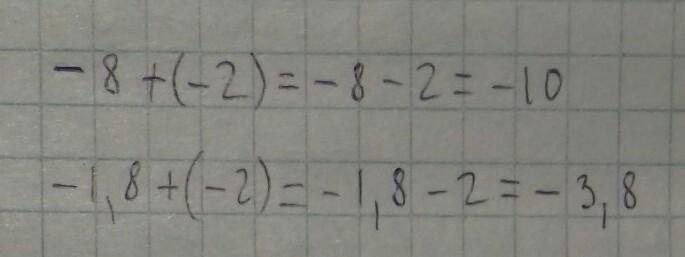 -8+(-2)=-8-2=-10
-1,8+(-2)=-1,8-2=-3,8